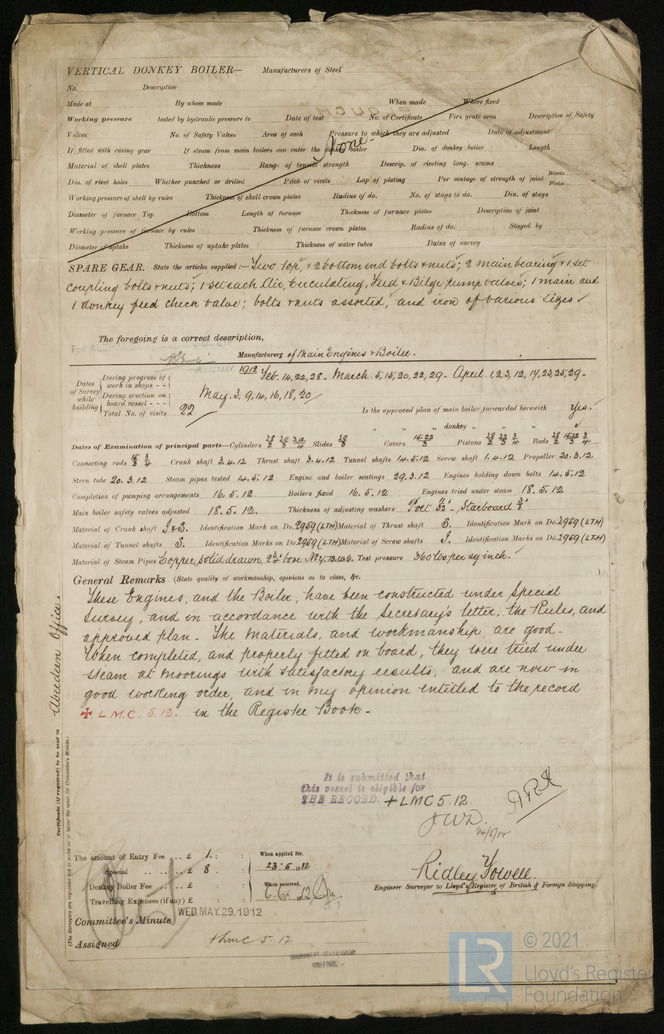 VERTICAL DONKEY BOILER— Manufacturers of Steel
No. Description
Made at By whom made When made Where fixed
Working pressure tested by hydraulic pressure to Date of test No. of Certificate Fire grate area Description of Safety
Valves No. of Safety Valves Area of each Pressure to which they are adjusted Date of adjustment
If fitted with easing gear If steam from main boilers can enter the donkey boiler Dia. of donkey boiler Length
None
Material of shell plates Thickness Range of tensile strength Descrip. of riveting long. seams
Dia. of rivet holes Whether punched or drilled Pitch of rivets Lap of plating Per centage of strength of joint Rivets Plates
Working pressure of shell by rules Thickness of shell crown plates Radius of do. No. of stays to do. Dia. of stays
Diameter of furnace Top Bottom Length of furnace Thickness of furnace plates Description of joint
Working pressure of furnace by rules Thickness of furnace crown plates Radius of do. Stayed by
Diameter of uptake Thickness of uptake plates Thickness of water tubes Dates of survey
SPARE GEAR. State the articles supplied:— Two top, & 2 bottom end bolts & nuts; 2 main bearing & 1 set
coupling bolts & nuts; 1 set each Air, Circulating, Feed & Bilge pump valves; 1 main and
1 donkey feed check valve; bolts & nuts assorted, and iron of various sizes
The foregoing is a correct description,
Manufacturers of Main Engines & Boiler.
Dates of Survey while building
During progress of work in shops - - 1912 Feb. 14, 22, 28 - March 5, 15, 20, 22, 29 - April 1, 2, 3, 12, 17, 23, 25, 29 -
During erection on board vessel - - - May 3, 9, 14, 16, 18, 20
Total No. of visits 22 Is the approved plan of main boiler forwarded herewith Yes.
" " " donkey " " "
Dates of Examination of principal parts—Cylinders Slides Covers Pistons Rods
Connecting rods Crank shaft 3.4.12 Thrust shaft 3.4.12 Tunnel shafts 14.5.12 Screw shaft 1.4.12 Propeller 20.3.12
Stern tube 20.3.12 Steam pipes tested 14.5.12 Engine and boiler seatings 29.3.12 Engines holding down bolts 14.5.12
Completion of pumping arrangements 16.5.12 Boilers fixed 16.5.12 Engines tried under steam 18.5.12
Main boiler safety valves adjusted 18.5.12. Thickness of adjusting washers Port Starboard 3/8
Material of Crank shaft I & S. Identification Mark on Do. 2959 (LTH) Material of Thrust shaft S. Identification Mark on Do. 2959 (LTH)
Material of Tunnel shafts S. Identification Marks on Do. 2959 (LTH) Material of Screw shafts Identification Marks on Do. 2959 (LTH)
Material of Steam Pipes Copper, solid drawn, 2 3/4" bore Test pressure 360 lbs per sq inch.
General Remarks (State quality of workmanship, opinions as to class, &c.
These Engines, and the Boiler, have been constructed under Special
Survey, and in accordance with the Secretary's letter, the Rules, and
approved plan - The materials, and workmanship, are good -
When completed, and properly fitted on board, they were tried under
steam at moorings with satisfactory results, and are now in
good working order, and in my opinion entitled to the record
+ L.M.C. 5.12. in the Register Book -
Aberdeen Office.
Certificate (if required) to be sent to
It is submitted that
this vessel is eligible for
THE RECORD. + LMC 5.12.
The amount of Entry Fee .. £ 1 : :
Special .. .. £ 8 : :
Donkey Boiler Fee .. .. £ : :
Travelling Expenses (if any) £ : :
When applied for,
23.5.12
When received,
Ridley Yowell.
Engineer Surveyor to Lloyd's Register of British & Foreign Shipping.
Committee's Minute WED. MAY. 29. 1912
Assigned + LMC 5.12
LR
© 2021
Lloyd's Register
Foundation